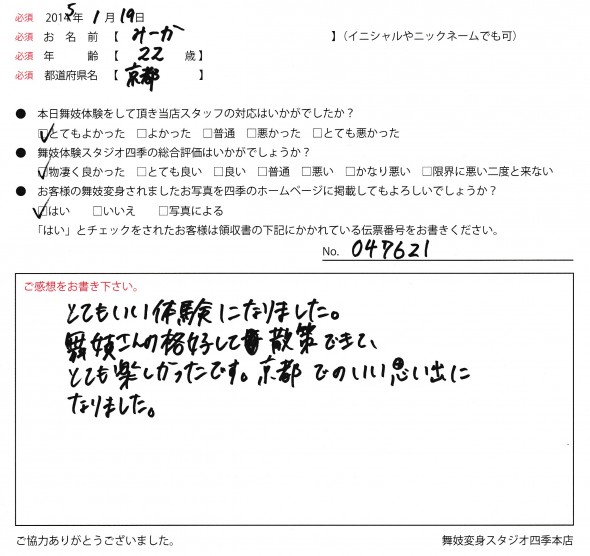 必須 2015年 1月19日
必須 お名前【 みーか 】(イニシャルやニックネームでも可)
必須 年齢【 22 歳】
必須 都道府県名【 京都 】
● 本日舞妓体験をして頂き当店スタッフの対応はいかがでしたか?
☑とてもよかった □よかった □普通 □悪かった □とても悪かった
● 舞妓体験スタジオ四季の総合評価はいかがでしょうか?
☑物凄く良かった □とても良い □良い □普通 □悪い □かなり悪い □限界に悪い二度と来ない
● お客様の舞妓変身されましたお写真を四季のホームページに掲載してもよろしいでしょうか?
☑はい □いいえ □写真による
「はい」とチェックをされたお客様は領収書の下記にかかれている伝票番号をお書きください。
No. 047621
ご感想をお書き下さい。
とてもいい体験になりました。
舞妓さんの格好して散策できて、
とても楽しかったです。京都でのいい思い出に
なりました。
ご協力ありがとうございました。
舞妓変身スタジオ四季本店